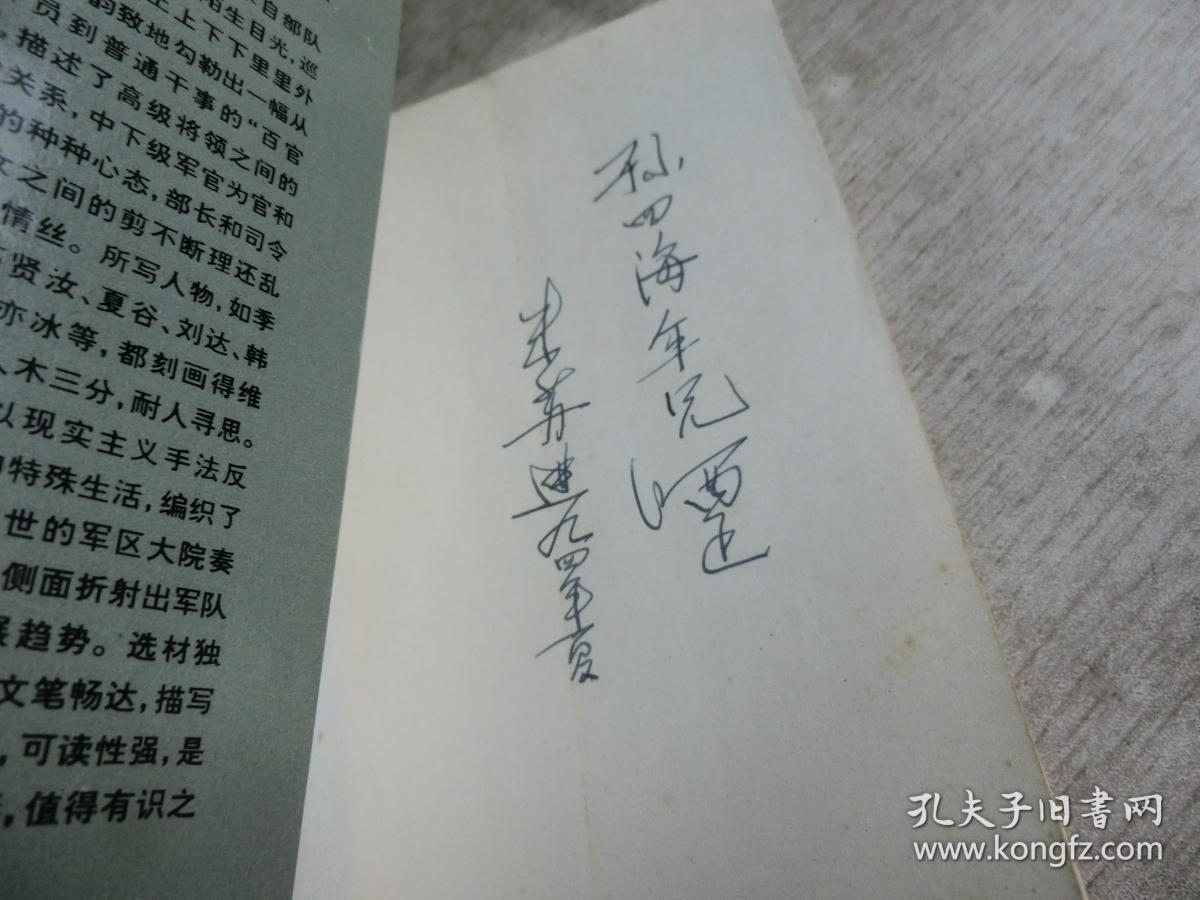 自部队
陌生目光,巡
上上下下里里外
韵致地勾勒出一幅从
员到普通干事的“百官
,描述了高级将领之间的
关系,中下级军官为官和
的种种心态,部长和司令
之间的剪不断理还乱
情丝。所写人物,如季
贤汝、夏谷、刘达、韩
亦冰等,都刻画得维
入木三分,耐人寻思。
以现实主义手法反
特殊生活,编织了
世的军区大院奏
侧面折射出军队
展趋势。选材独
文笔畅达,描写
,可读性强,是
,值得有识之
孙四海年兄
朱苏进九四年夏
孔夫子旧书网
www.kongfz.com